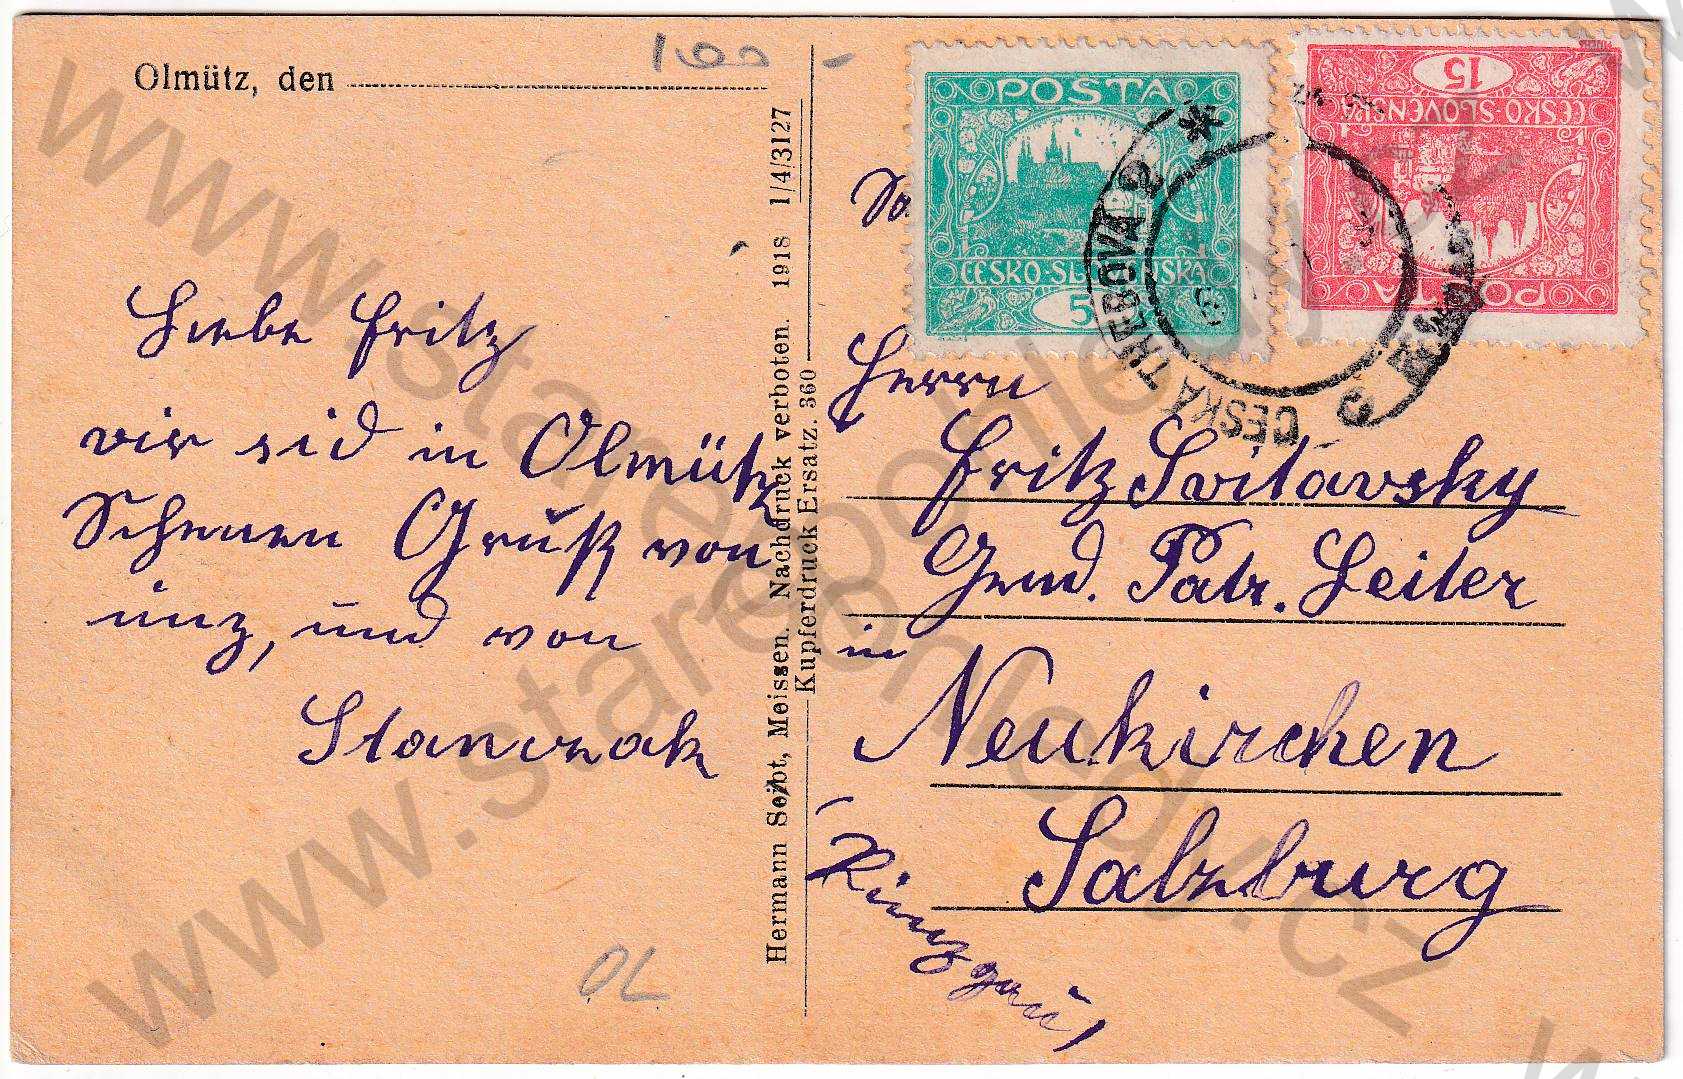 Olmütz, den
1000 -
Liebe Fritz
wir sid in Olmütz
Schenen Gruß von
unz, und von
Stanczak
OL
Hermann Seibt, Meissen. Nachdruck verboten. 1918 1/4/3127
Kupferdruck Ersatz. 360
POSTA
ČESKO-SLOVENSKÁ
5
15
ČESKO-SLOVENSKÁ
POŠTA
ČESKÁ TŘEBOVÁ 2 *
Herrn
Fritz Svitavsky
Gend. Patr. Leiter
in
Neukirchen
Salzburg
(Pinzgau)
www.starepohledy.cz
www.starepohledy.cz